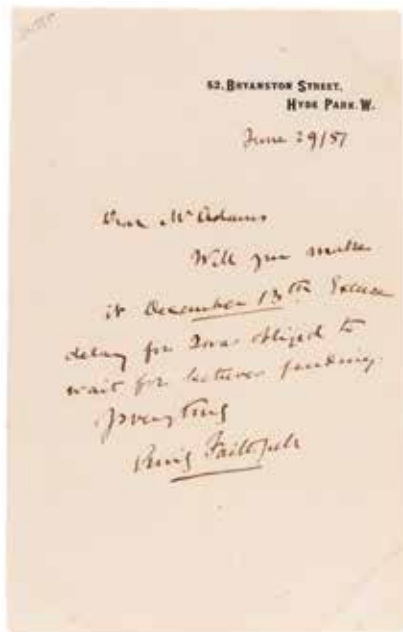 52, BRYANSTON STREET,
HYDE PARK. W.
June 29/57
Dear Mr Adams
Will you make
it December 13th Excuse
delay for I was obliged to
wait for letters pending